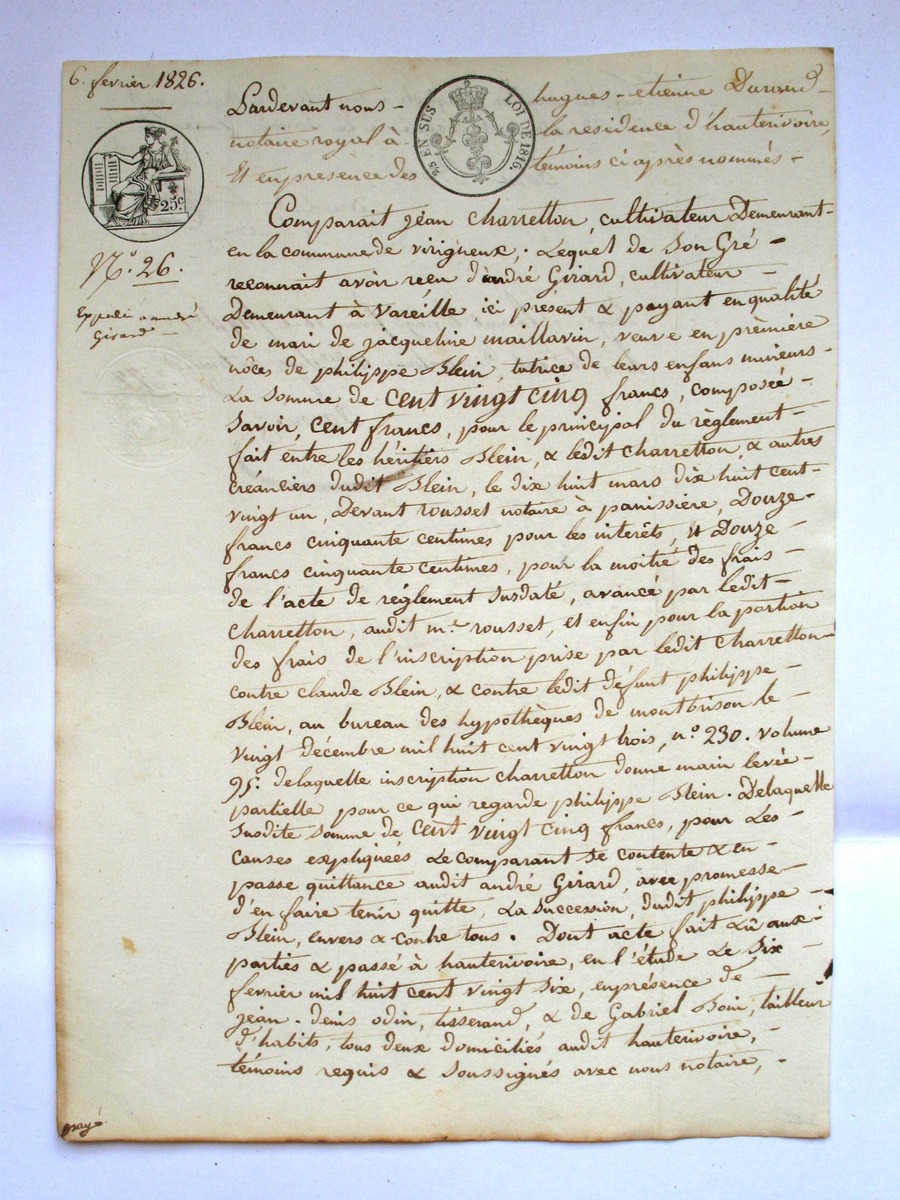 6. fevrier 1826.
Pardevant nous - hugues - etienne Durand -
notaire royal à la residence d'hauterivoire,
Et en presence des témoins ci après nommés -
25 EN SUS
LOI DE 1816.
25c
N.o 26.
Expedié a andré
Girard -
Comparait jean Charretton, cultivateur Demeurant -
en la commune de virigneux. Lequel de Son Gré -
reconnait avoir reçu d'andré Girard, cultivateur -
Demeurant à Vareille, ici present & payant en qualité
de mari de jacqueline maillavin, veuve en première
nôces de philippe Blein, tutrice de leurs enfans mineurs -
La Somme de Cent vingt cinq francs, composée -
Savoir, Cent francs, pour le principal du règlement -
fait entre les héritiers Blein, & ledit Charretton, & autres
créanciers dudit Blein, le dix huit mars dix huit cent -
vingt un, Devant rousset notaire à panissière, Douze -
francs cinquante centimes pour les interêts, Et Douze -
francs cinquante centimes, pour la moitié des frais -
de l'acte de réglement susdaté, avancé par ledit -
Charretton, audit m.e rousset, et enfin pour la portion
des frais de l'inscription prise par ledit Charretton -
contre claude Blein, & contre ledit défunt philippe -
Blein, au bureau des hypothèques de montbrison le -
vingt décembre mil huit cent vingt trois, n.o 230. volume
95. delaquelle inscription charretton donne main levée -
partielle pour ce qui regarde philippe Blein. Delaquelle
Susdite somme de Cent vingt cinq francs, pour Les -
Causes expliquées Le comparant se contente & en -
passe quittance audit andré Girard, avec promesse -
d'en faire tenir quitte, La Succession, dudit philippe -
Blein, envers & contre tous. Dont acte fait Lû aux -
parties & passé à hauterivoire, en l'étude Le Six -
fevrier mil huit cent vingt six, en présence de -
jean - denis odin, tisserand, & de Gabriel Boin, tailleur
d'habits, tous deux domiciliés audit hauterivoire, -
témoins requis & Soussignés avec nous notaire, -
payé